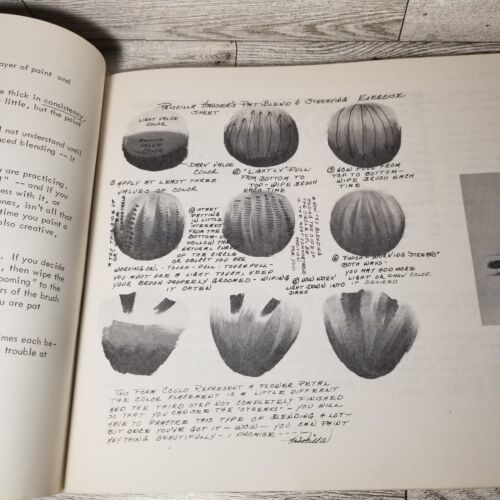 ayer of paint and
e thick in consistency,
little, but the paint
not understand until
ced blending -- it
are practicing.
" -- and if you
ess with it, or
ones, isn't all that
time you paint a
also creative,
If you decide
, then wipe the
ooming" to the
rs of the brush
you are pat
imes each be-
trouble at
PRISCILLA HAUSER'S PAT BLEND & STREAKING EXERCISE
SHEET
LIGHT VALUE
COLOR
MEDIUM
VALUE
COLOR
DARK VALUE
COLOR
① APPLY AT LEAST THREE
VALUES OF COLOR
② "LIGHTLY" PULL
FROM BOTTOM TO
TOP - WIPE BRUSH
EACH TIME
③ NOW PULL FROM
TOP TO BOTTOM -
WIPE BRUSH EACH
TIME
④ START
PATTING
IN LITTLE
"STREAKS"
FROM THE
BOTTOM - UP
FOLLOW THE
NATURAL CURVE
OF THE CIRCLE
OR OBJECT YOU ARE
WORKING ON. - TOUCH - PULL : TOUCH PULL -
YOU MUST USE A LIGHT TOUCH, KEEP
YOUR BRUSH PROPERLY GROOMED - WIPING
IT OFTEN
⑤ NOW WORK
LIGHT DOWN INTO
DARK
⑥ FINISH WORKING "STREAKS"
BOTH WAYS -
YOU MAY ADD MORE
LIGHT OR DARK COLOR
IF DESIRED
THIS FORM COULD REPRESENT A FLOWER PETAL
THE COLOR PLACEMENT IS A LITTLE DIFFERNT
AND THE THIRD STEP NOT COMPLETELY FINISHED
SO THAT YOU CAN SEE THE "STREAKS" - YOU WILL
HAVE TO PRACTICE THIS TYPE OF BLENDING A LOT -
BUT ONCE YOU'VE GOT IT - WOW - YOU CAN PAINT
ANYTHING BEAUTIFULLY - I PROMISE -----
Priscilla